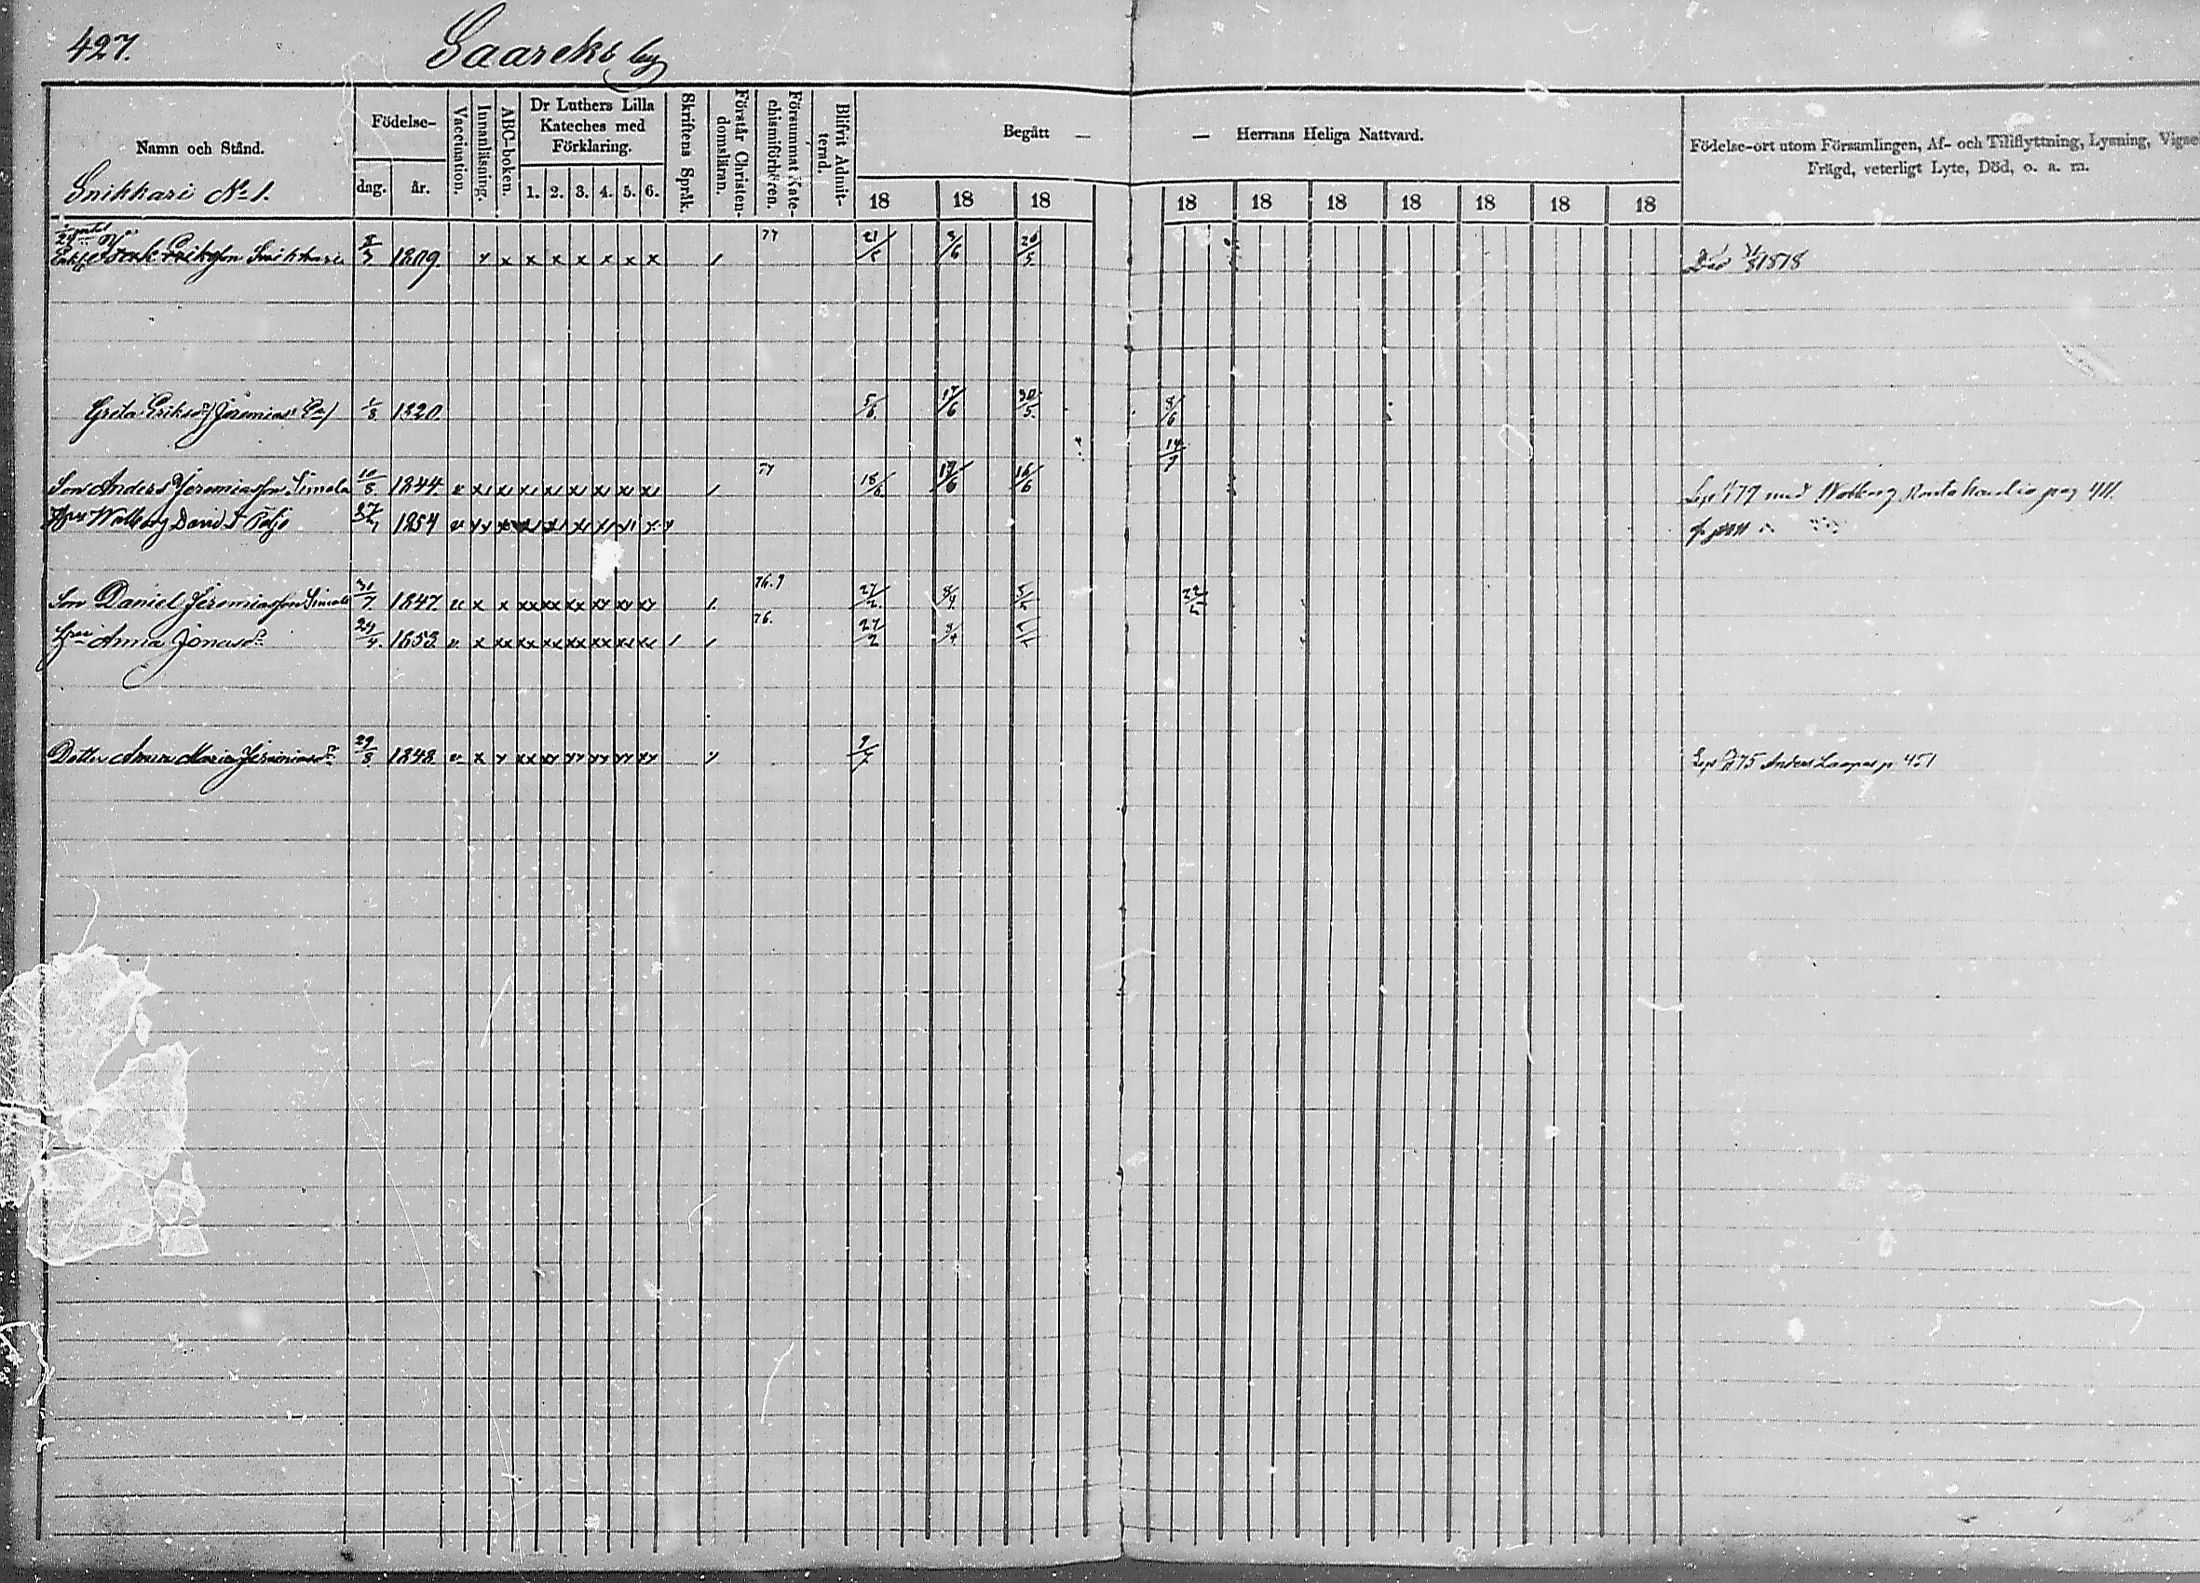 427. Saareks by
Namn och Stånd.
Födelse-
dag. år.
Vaccination.
Innanläsning.
ABC-boken.
Dr Luthers Lilla
Kateches med
Förklaring.
1. 2. 3. 4. 5. 6.
Skriftens Språk.
Förstår Christen-
domsläran.
Försummat Kate-
chismiförhören.
Blifvit Admit-
terad.
Begått —
— Herrans Heliga Nattvard.
18 18 18 18 18 18 18 18 18 18
Födelse-ort utom Församlingen, Af- och Tillflyttning, Lysning, Vigse
Frägd, veterligt Lyte, Död, o. a. m.
Snikkari No 1.
Eriksson Snikkari 1809. x x x x x x x 77 21/5 9/6 20/5 Död 1878
Greta Eriksdr (Jeremias 1/8 1820. 5/6 17/6 30/5 8/6
14/7
Son Anders Jeremiasson Simola 10/8 1844. 77 18/6 17/6 16/6 med Walborg pag 411.
Walborg David 1854
Son Daniel Jeremiasson Simola 31/7 1847. v x x xx xx xx xx xx xx 76.9 27/2 8/4 22/5
Anna Jonasdr 24/4. 1853. v x xx xx xx xx xx xx xx 76. 27/2 8/4
Dotter Anna Maria Jeremiasdr 29/8 1848. v x 9/7 75 Anders p. 451